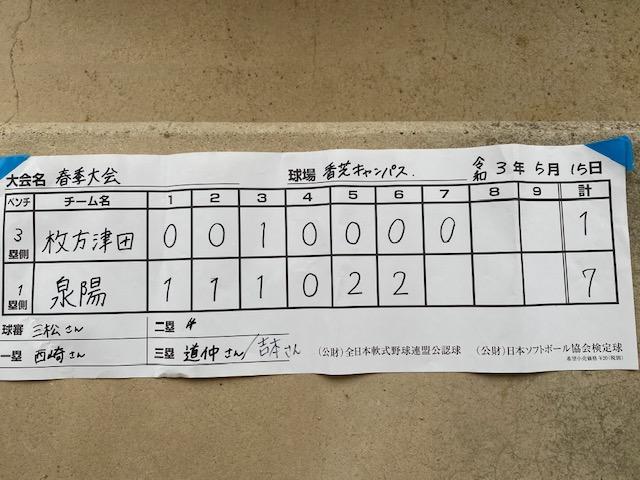 大会名 春季大会 球場 香芝キャンパス. 令和 3年 5月 15日
ベンチ チーム名 1 2 3 4 5 6 7 8 9 計
3塁側 枚方津田 0 0 1 0 0 0 0 1
1塁側 泉陽 1 1 1 0 2 2 7
球審 三松さん 二塁
一塁 西崎さん 三塁 道仲さん/吉本さん (公財)全日本軟式野球連盟公認球 (公財)日本ソフトボール協会検定球
希望小売価格 ¥20(税別)